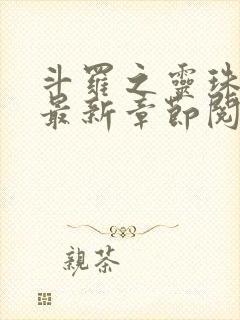 斗羅之靈珠
最新章節閱
親茶